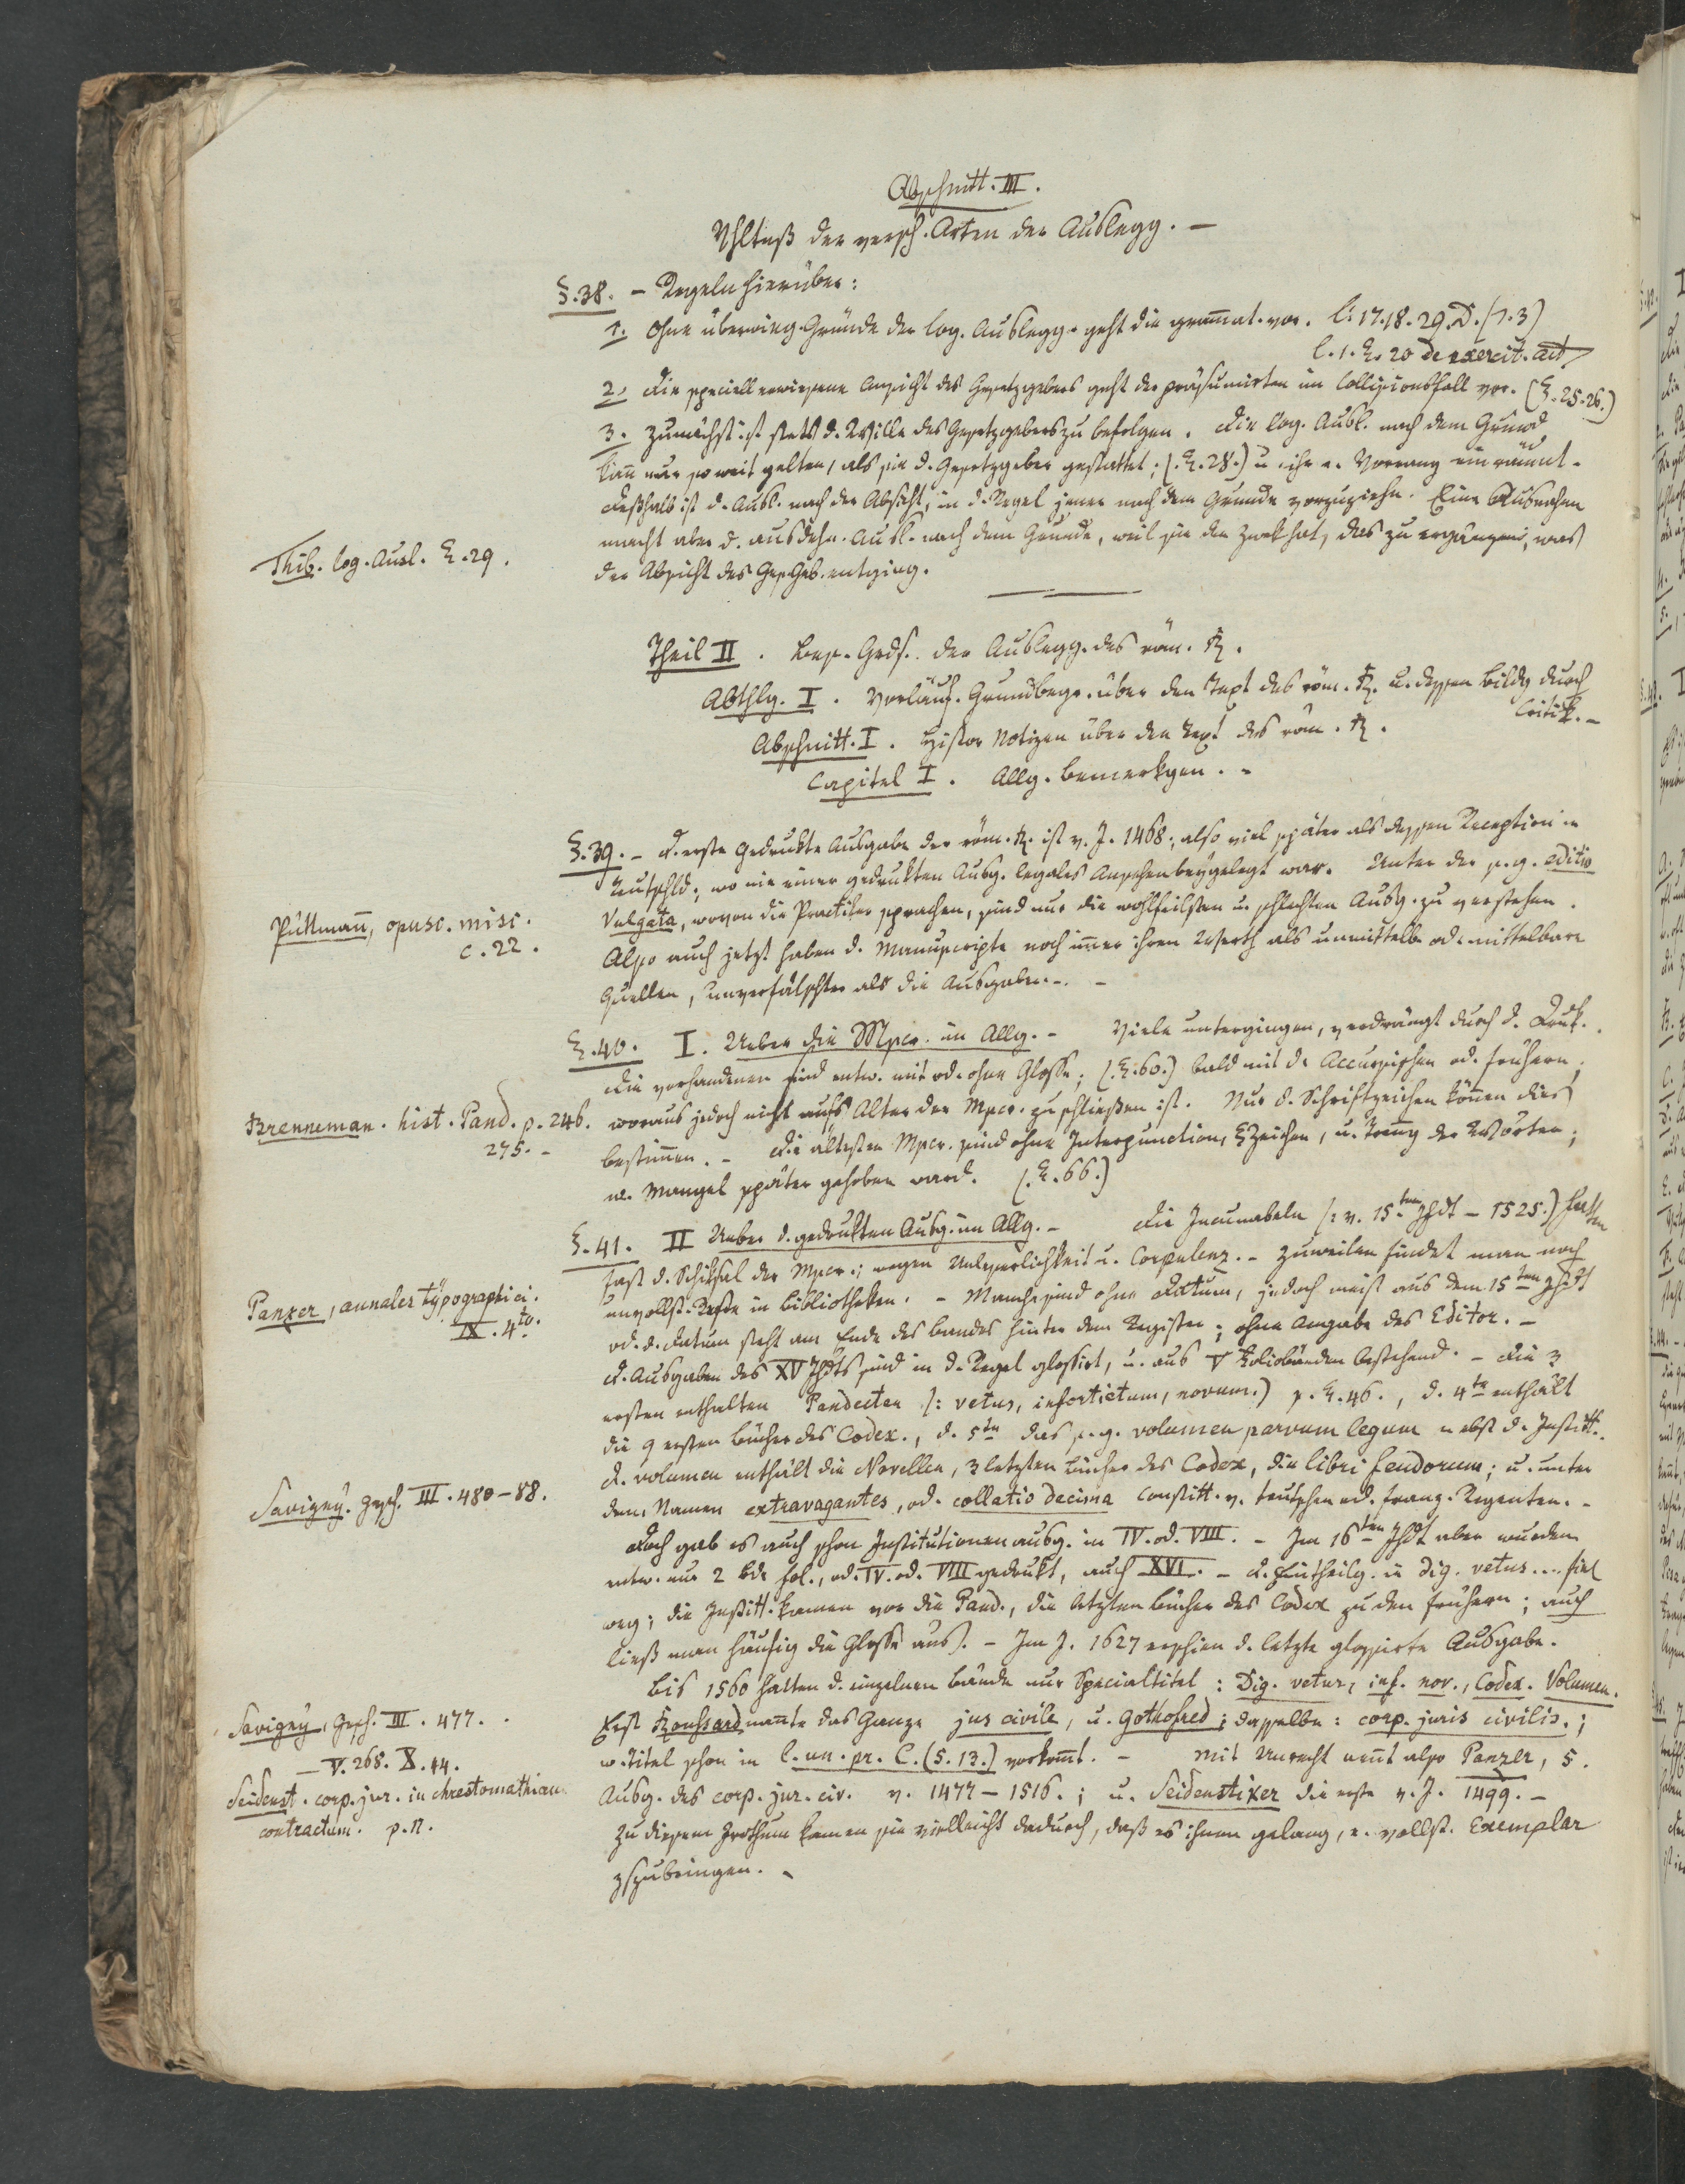 Abschnitt. III.
Vhltniß der versch. Arten der Auslegg. —
§.38. — Regeln hierüber:
1. Ohne überwieg. Gründe der log. Auslegg. geht die gramat. vor. l. 17. 18. 29. D. (1.3)
l. 1. §. 20 de exercit. act
2. Die speciell erwiesene Ansicht des Gesetzgebers geht der präsumirten im Collisionsfall vor. (§. 25. 26.)
3. Zunächst ist stets d. Wille des Gesetzgebers zu befolgen. Die log. Ausl. nach dem Grund
kan nur so weit gelten, als sie d. Gesetzgeber gestattet; (§. 28.) u. ihr e. Vorrang einräumt.
Deßhalb ist d. Ausl. nach der Absicht, in d. Regel jener nach dem Grunde vorzuziehn. Eine Ausnahme
macht aber d. ausdehn. Ausl. nach dem Grunde, weil sie den Zwek hat, das zu ergänzen, was
der Absicht des Ges.Geb. entging.
Thib. log. Ausl. §. 29.
Theil II. Bes. Grds. der Auslegg. des röm. R.
Abthlg. I. Vorläuf. Grundbegr. über den Text des röm. R. u. dessen Bildg durch
Critik. —
Abschnitt. I. Histor Notizen über den Text des röm. R.
Capitel I. Allg. Bemerkgen. —
§.39. — D. erste gedrukte Ausgabe des röm. R. ist v. J. 1468; also viel später als dessen Reception in
Teutschld; wo nie einer gedrukten Ausg. legales Ansehen beygelegt war. Unter der s. g. editio
Vulgata, wovon die Practiker sprachen, sind nur die wohlfeilsten u. schlechten Ausg. zu verstehen.
Also auch jetzt haben d. Manuscripte noch imer ihren Werth als unmittelb. od. mittelbare
Quellen, unverfälschter als die Ausgaben. —
Püttmann, opusc. misc.
c. 22.
§.40. I. Ueber die Mscr. im Allg. — Viele untergingen, verdrängt durch d. Druk.
Die vorhandenen sind entw. mit od. ohne Glosse; (§. 60.) bald mit der Accursischen od. frühern;
woraus jedoch nicht aufs Alter der Mscr. zu schließen ist. Nur d. Schriftzeichen können dies
bestimen. — Die ältesten Mscr. sind ohne Interpunction, §Zeichen, u. Trenng der Wörter;
w. Mangel später gehoben ward. (§. 66.)
Brenneman. hist. Pand. p. 246.
275. —
§.41. II Ueber d. gedrukten Ausg. im Allg. — Die Incunabeln (: v. 15ten Jhdt — 1525.) hatten
fast d. Schiksal der Mscr.; wegen Unleserlichkeit u. Corpulenz. — Zuweilen findet man noch
unvollst. Reste in Bibliotheken. — Manche sind ohne Datum, jedoch meist aus dem 15ten Jhdt
od. d. Datum steht am Ende des Bandes hinter dem Register; ohne Angabe des Editor. —
D. Ausgaben des XV Jhdts sind in d. Regel glossirt, u. aus V Foliobänden bestehend. — Die 3
ersten enthalten Pandecten (: vetus, infortiatum, novum.) s. §. 46., d. 4te enthält
die 9 ersten Bücher des Codex., d. 5te das s. g. volumen parvum legum nebst d. Institt.
D. volumen enthält die Novellen, 3 letzten Bücher des Codex, die libri feudorum; u. unter
dem Namen extravagantes, od. collatio decima Constitt. v. teutschen od. franz. Regenten. —
Panzer, annales typographici.
IX. 4to.
Savigny. Gesch. III. 480—88.
Doch gab es auch schon Institutionenausg. in IV. od. VIII. — Im 16ten Jhdt aber wurden
entw. nur 2 Bde fol., od. IV. od. VIII gedrukt, auch XVI. — D. Eintheilg. in dig. vetus.... fiel
weg; die Institt. kamen vor die Pand., die letzten Bücher des Codex zu den frühern; auch
ließ man häufig die Glosse aus. — Im J. 1627 erschien d. letzte glossirte Ausgabe.
Bis 1560 hatten d. einzelnen Bände nur Specialtitel: Dig. vetus, inf. nov., Codex. Volumen.
Erst Roussard nante das Ganze jus civile, u. Gothofred; dasselbe: corp. juris civilis.;
w. Titel schon in l. un. pr. C. (5. 13.) vorkomt. — Mit Unrecht nent also Panzer, 5.
Ausg. des corp. jur. civ. v. 1477—1516.; u. Seidenstiker die erste v. J. 1499. —
Zu diesem Irrthum kamen sie vielleicht dadurch, daß es ihnen gelang, e. vollst. Exemplar
zszubringen. —
Savigny, Gesch. III. 477.
— V. 268. X. 44.
Seidenst. corp. jur. in chrestomathiam
contractum. p. 11.